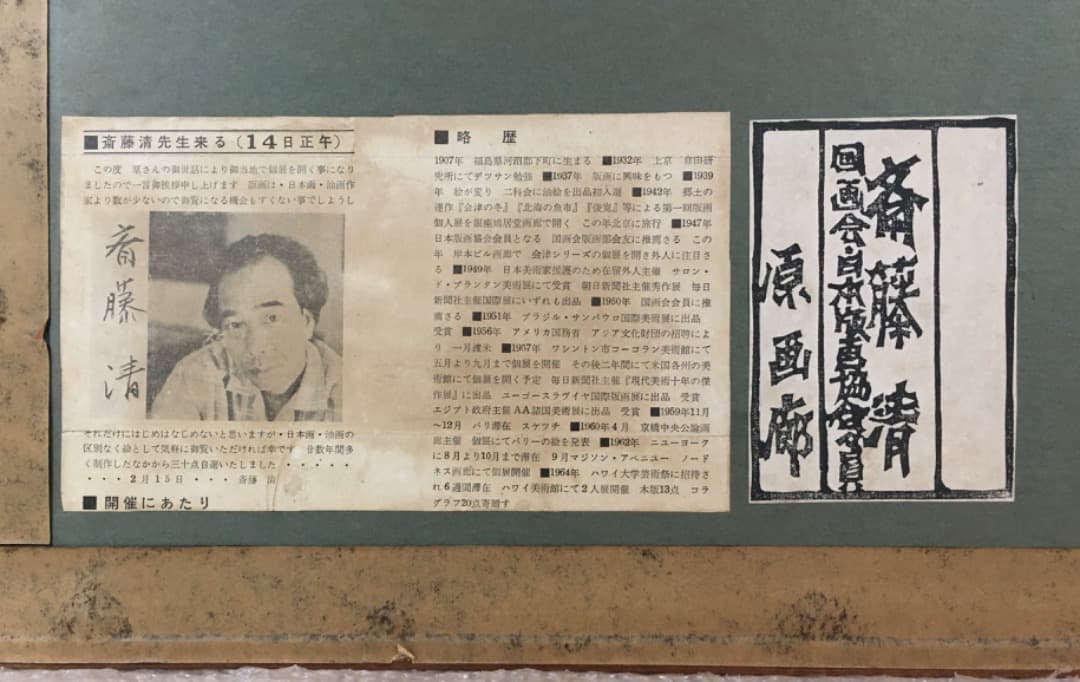 ■斎藤清先生来る(14日正午)
この度 原さんの御世話により御当地で個展を開く事になり
ましたので一言御挨拶申し上げます 版画は・日本画・油画作
家より数が少ないので御覧になる機会もすくない事でしょうし
斎藤清
それだけにはじめはなじめないと思いますが・日本画・油画の
区別なく絵として気軽に御覧いただければ幸です 廿数年間多
く制作したなかから三十点自選いたしました・・・・・・
・・・2月15日・・・斎藤 清
■開催にあたり
■略 歴
1907年 福島県河沼郡下町に生まる ■1932年 上京 自由研
究所にてデツサン勉強 ■1937年 版画に興味をもつ ■1939
年 絵が変り 二科会に油絵を出品初入選 ■1942年 郷土の
連作『会津の冬』『北海の魚市』『俊寛』等による第一回版画
個人展を銀座鳩居堂画廊で開く この年北京に旅行 ■1947年
日本版画協会会員となる 国画会版画部会友に推薦さる この
年 岸本ビル画廊で 会津シリーズの個展を開き外人に注目さ
る ■1949年 日本美術家援護のため在留外人主催 サロン・
ド・プランタン美術展にて受賞 朝日新聞社主催秀作展 毎日
新聞社主催国際展にいずれも出品 ■1950年 国画会会員に推
薦さる ■1951年 ブラジル・サンパウロ国際美術展に出品
受賞 ■1956年 アメリカ国務省 アジア文化財団の招聘によ
り 一月渡米 ■1957年 ワシントン市コーコラン美術館にて
五月より九月まで個展を開催 その後二年間にて米国各州の美
術館にて個展を開く予定 毎日新聞社主催『現代美術十年の傑
作展』に出品 ユーゴースラヴイヤ国際版画展に出品 受賞
エジプト政府主催AA諸国美術展に出品 受賞 ■1959年11月
~12月 パリ滞在 スケツチ ■1960年4月 京橋中央公論画
廊主催 個展にてパリーの絵を発表 ■1962年 ニューヨーク
に8月より10月まで滞在 9月マジソン・アベニュー ノード
ネス画廊にて個展開催 ■1964年 ハワイ大学芸術祭に招待さ
れ6週間滞在 ハワイ美術館にて2人展開催 木版13点 コラ
グラフ20点寄贈す
斎藤清
国画会・日本版画協会会員
原画廊